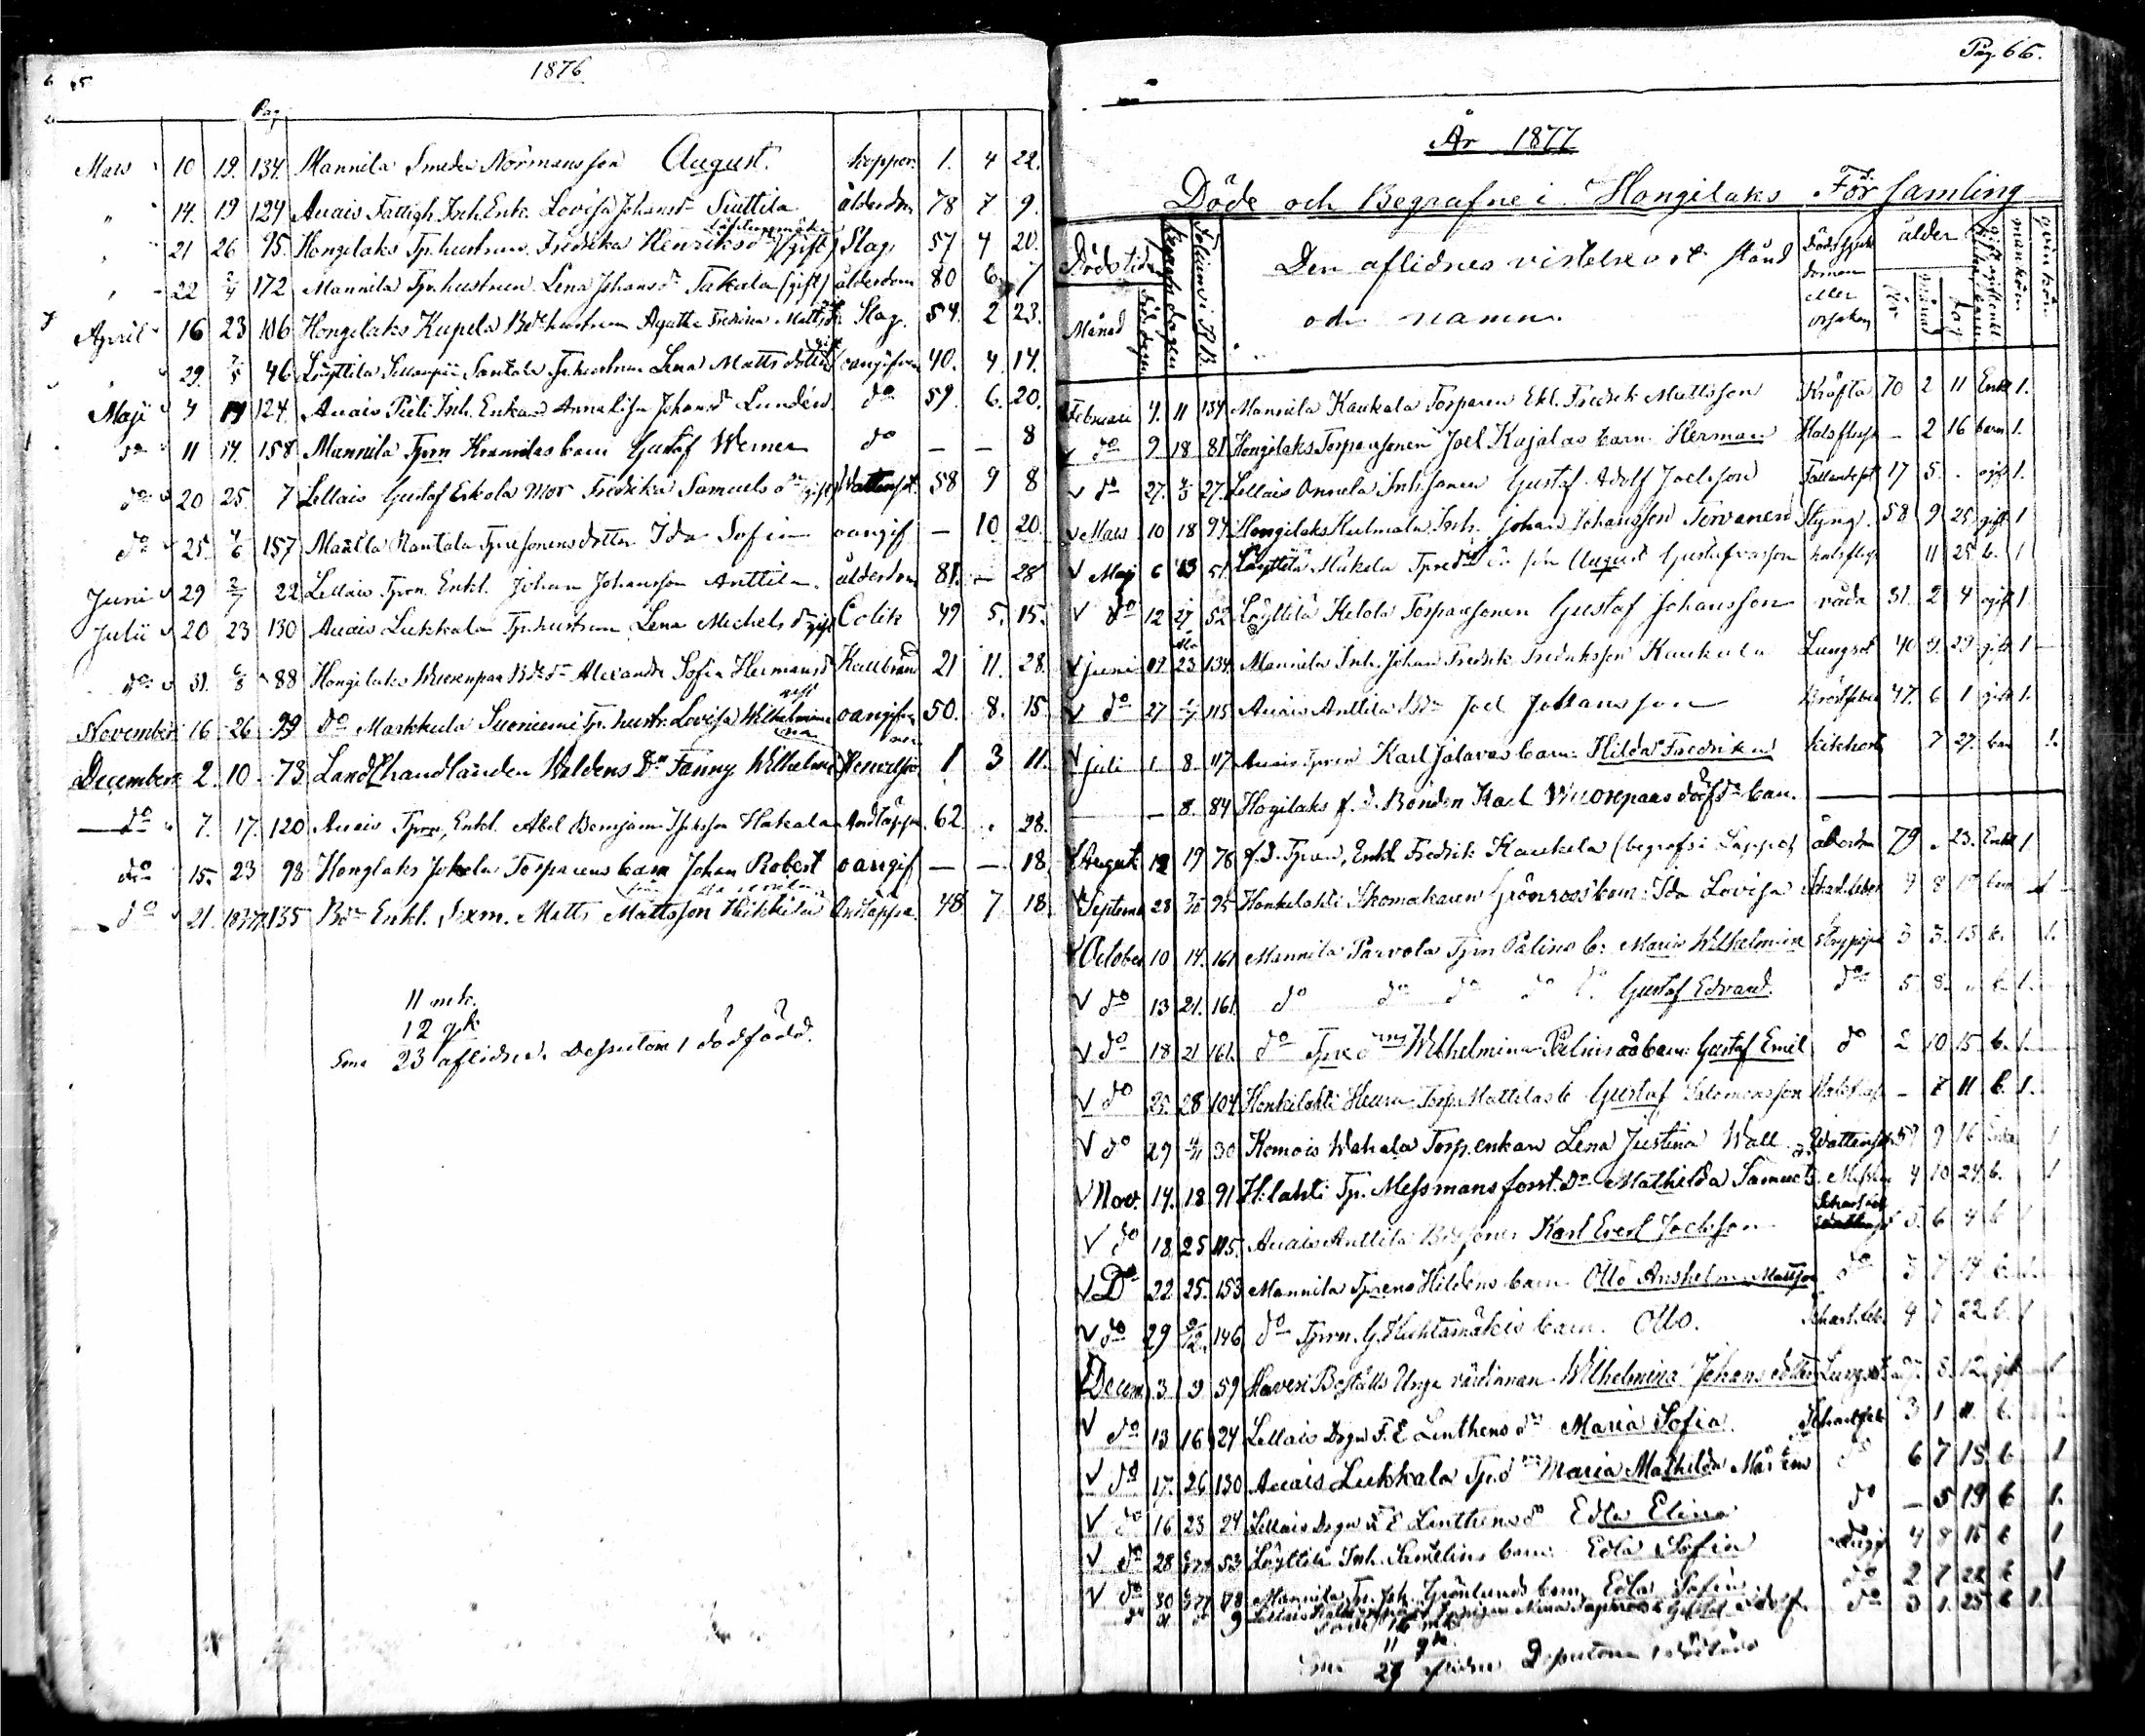 65
1876
Pag
Mars 10 19. 134. Mannila Smeden Normans son August. koppor. 1. 4 22.
" 14. 19 124 Auais Fattigh. Inh. Enk. Lovisa Johansd. Siuttila ålderdom 78 7 9.
" 21 26 95. Hongilaks Tp. hustrun Fredrika Henriksdr (gift) Slag 57 4 20.
" 22 2/4 172 Mannila Tpr. hustrun Lena Johansdr Takala (gift) ålderdom 80 6 7
April 16 23 106 Hongilaks Kupila Bde hustrun Agatha Fredrica Mattsdr. Slag. 54. 2 23.
" 29. 7/5 46 Löyttilä Santala Tp. hustrun Lena Matts dotter gift oangifven 40. 4. 14.
Maji 4 124. Auais Pieli Inh. Enkan Anna Lisa Johansd Lundén do 59. 6. 20.
do 11 14. 158 Mannila Tprn barn Gustaf Werner do — — 8
do 20 25. 7 Lellais Gustaf Eskola Mor Fredrika Samuels dr gift Wattensot. 58 9 8
do 25. 157 Mannila Rantala Tpresonens dotter Ida Sofia oangif — 10 20.
Juni 29 2/7 22 Lellais Tprn. Enkl. Johan Johansson Anttila. ålderdom 81. — 28
Julii 20 23 130 Auais Lukkala Tp. hustrun Lena Michels dr gift Colik 49 5. 15.
do 31. 88 Hongilaks Wuorenpaa Bde dr Alexandra Sofia Hermansd Kallbrand 21 11. 28.
November 16 26 29 do Markkula Suoniemi Tp. hustr. Lovisa Wilhelmina gift oangifven 50. 8. 15.
December 2. 10. 73. Landthandlanden Waldens Dr Fanny Wilhelmina 1 3 11.
do 7. 17. 120 Auais Tprn, Enkl. Abel Benjam. Hakala Andtäppa. 62. . 28.
do 15. 23 98. Honglaks Jokela Torparens barn Johan Robert oangif — — 18
do 21. 135 Bdn Enkl. Sexm. Matts Mattsson Heikkilä Andtäppa. 48 7 18
11 mk.
12 qk.
Sma 23 aflidne. Dessutom 1 dödfödd.
Pag. 66.
År 1877
Döde och Begrafne i Hongilaks Församling
Dödstid Månad Död dagen Begrafn. dagen Folium i K.B. Den aflidnes vistelseort, stånd och namn. Dödssjukdomen eller orsaken ålder år månad dag mankön qvinkön
Februari 4. 11 134 Mannila Kaukala Torparen Ekl. Fredrik Mattsson Kräfta 70 2 11 Enkl 1.
V do 9 18 81 Hongilaks Torparsonen Joel Kajalas barn Herman Halsfluss — 2 16 barn 1.
V do 27. 4/3 27. Lellais Onnela Inh. sonen Gustaf Adolf Joelsson Fallandesot 17 5. . ogift 1.
V Mars 10 18 97 Hongilaks Kulmala Inh. Johan Johansson Tervanen Styng. 58 9 25 gift 1
V Maji 6 13 51. Löyttilä Mäkela Tpredr sin son August Gustafvasson halsflus 11 25 b. 1
V do 12 27 52 Löyttilä Kelola Torparsonen Gustaf Johansson våda 31. 2 4 ogift 1
V juni 19. 23 134. Mannila Inh. Johan Fredrik Fredriksson Kaukala Lungsot 40 9. 29 gift 1
V do 27 115 Auais Anttila Bdn Joel Johansson 47. 6 1 gift 1.
V juli 1 8 117 Auais Tprn Karl Jalavas barn: Hilda Fredrika kikhosta 7 27. barn 1.
— 8. 84 Hogilaks f. d. Bonden Karl Wuorenpaas dödfdt barn.
V August 12 19 76 f. d. Tprn, Enkl. Fredrik Kaukela (begrafs i Lappo) ålderdom 79 . 23. Enkl 1.
V Septemb 23 30 95 Honkilahti Skomakaren Grönroos barn: Ida Lovisa Scharl. feber 9 8 barn 1
V October 10 14. 161 Mannila Parvola Tprn Palins b: Maria Wilhelmina Strypsjuka 3 3. 13 b. 1.
V do 13 21. 161. do do do do b. Gustaf Edvard. do 5 8. „ b. 1.
V do 18 21 161. do Tpre Wilhelmina Palins oä barn: Gustaf Emil do 2 10 15. b. 1.
V do 25. 28 104 Honkilahti Heura Torp. Mattilas b. Gustaf Salomonsson — 7 11 b. 1.
V do 29 4/11 30 Komois Wahala Torp. enkan Lena Justina Wall Wattensot 59 9 16 Enka 1
V Nov. 14. 18 91 H:lahti Tp. Messmans forst. Dr Mathilda Samuels 4 10 24. b. 1
V do 18. 25 115. Auais Anttila Bdesonen Karl Evert Joelsson 5. 6 4 b 1
V Do 22 25. 153 Mannila Tprens Hildens barn Otto Anshelm Mattsson do 3 7 14 b. 1.
V do 29 2/12. 146 do Tprn. G. Huhtamäkis barn. Otto. Scharl. feb. 4 7 22. b. 1
Decem. 3 9 59 Haveri Boställs Unga värdinnan Wilhelmina Johansdotter Lungsot 27. 8. 12. gift 1
V do 13 16 24 Lellais Dagv. F. E Linthens dr Maria Sofia. Scharl feb 3 1 11. b. 1.
V do 17. 26 130 Auais Lukkala Tp. dr Maria Mathilda Mårtens do 6 7 15. b 1
V do 16 23 24 Lellais Dagv. F E Linthens dr Edla Elina do — 5 19 b 1.
V do 28 53 Löyttilä Inh. Samelins barn: Edla Sofia 4 8 15 b 1
V do 30 178 Mannila Tp. Joh. Grönlunds barn Edla Sofia do 2 7 22 b 1
do 9 Lellais Gustaf Adolf do 3 1. 25 b 1.
16 mk
11 qk.
Sma 27 aflidne Dessutom 1 dödfödd